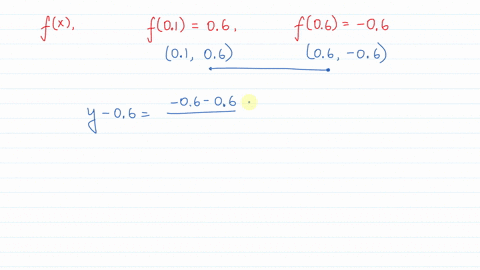 f(x), f(0.1) = 0.6, f(0.6) = -0.6
(0.1, 0.6) (0.6, -0.6)
y - 0.6 = -0.6 - 0.6